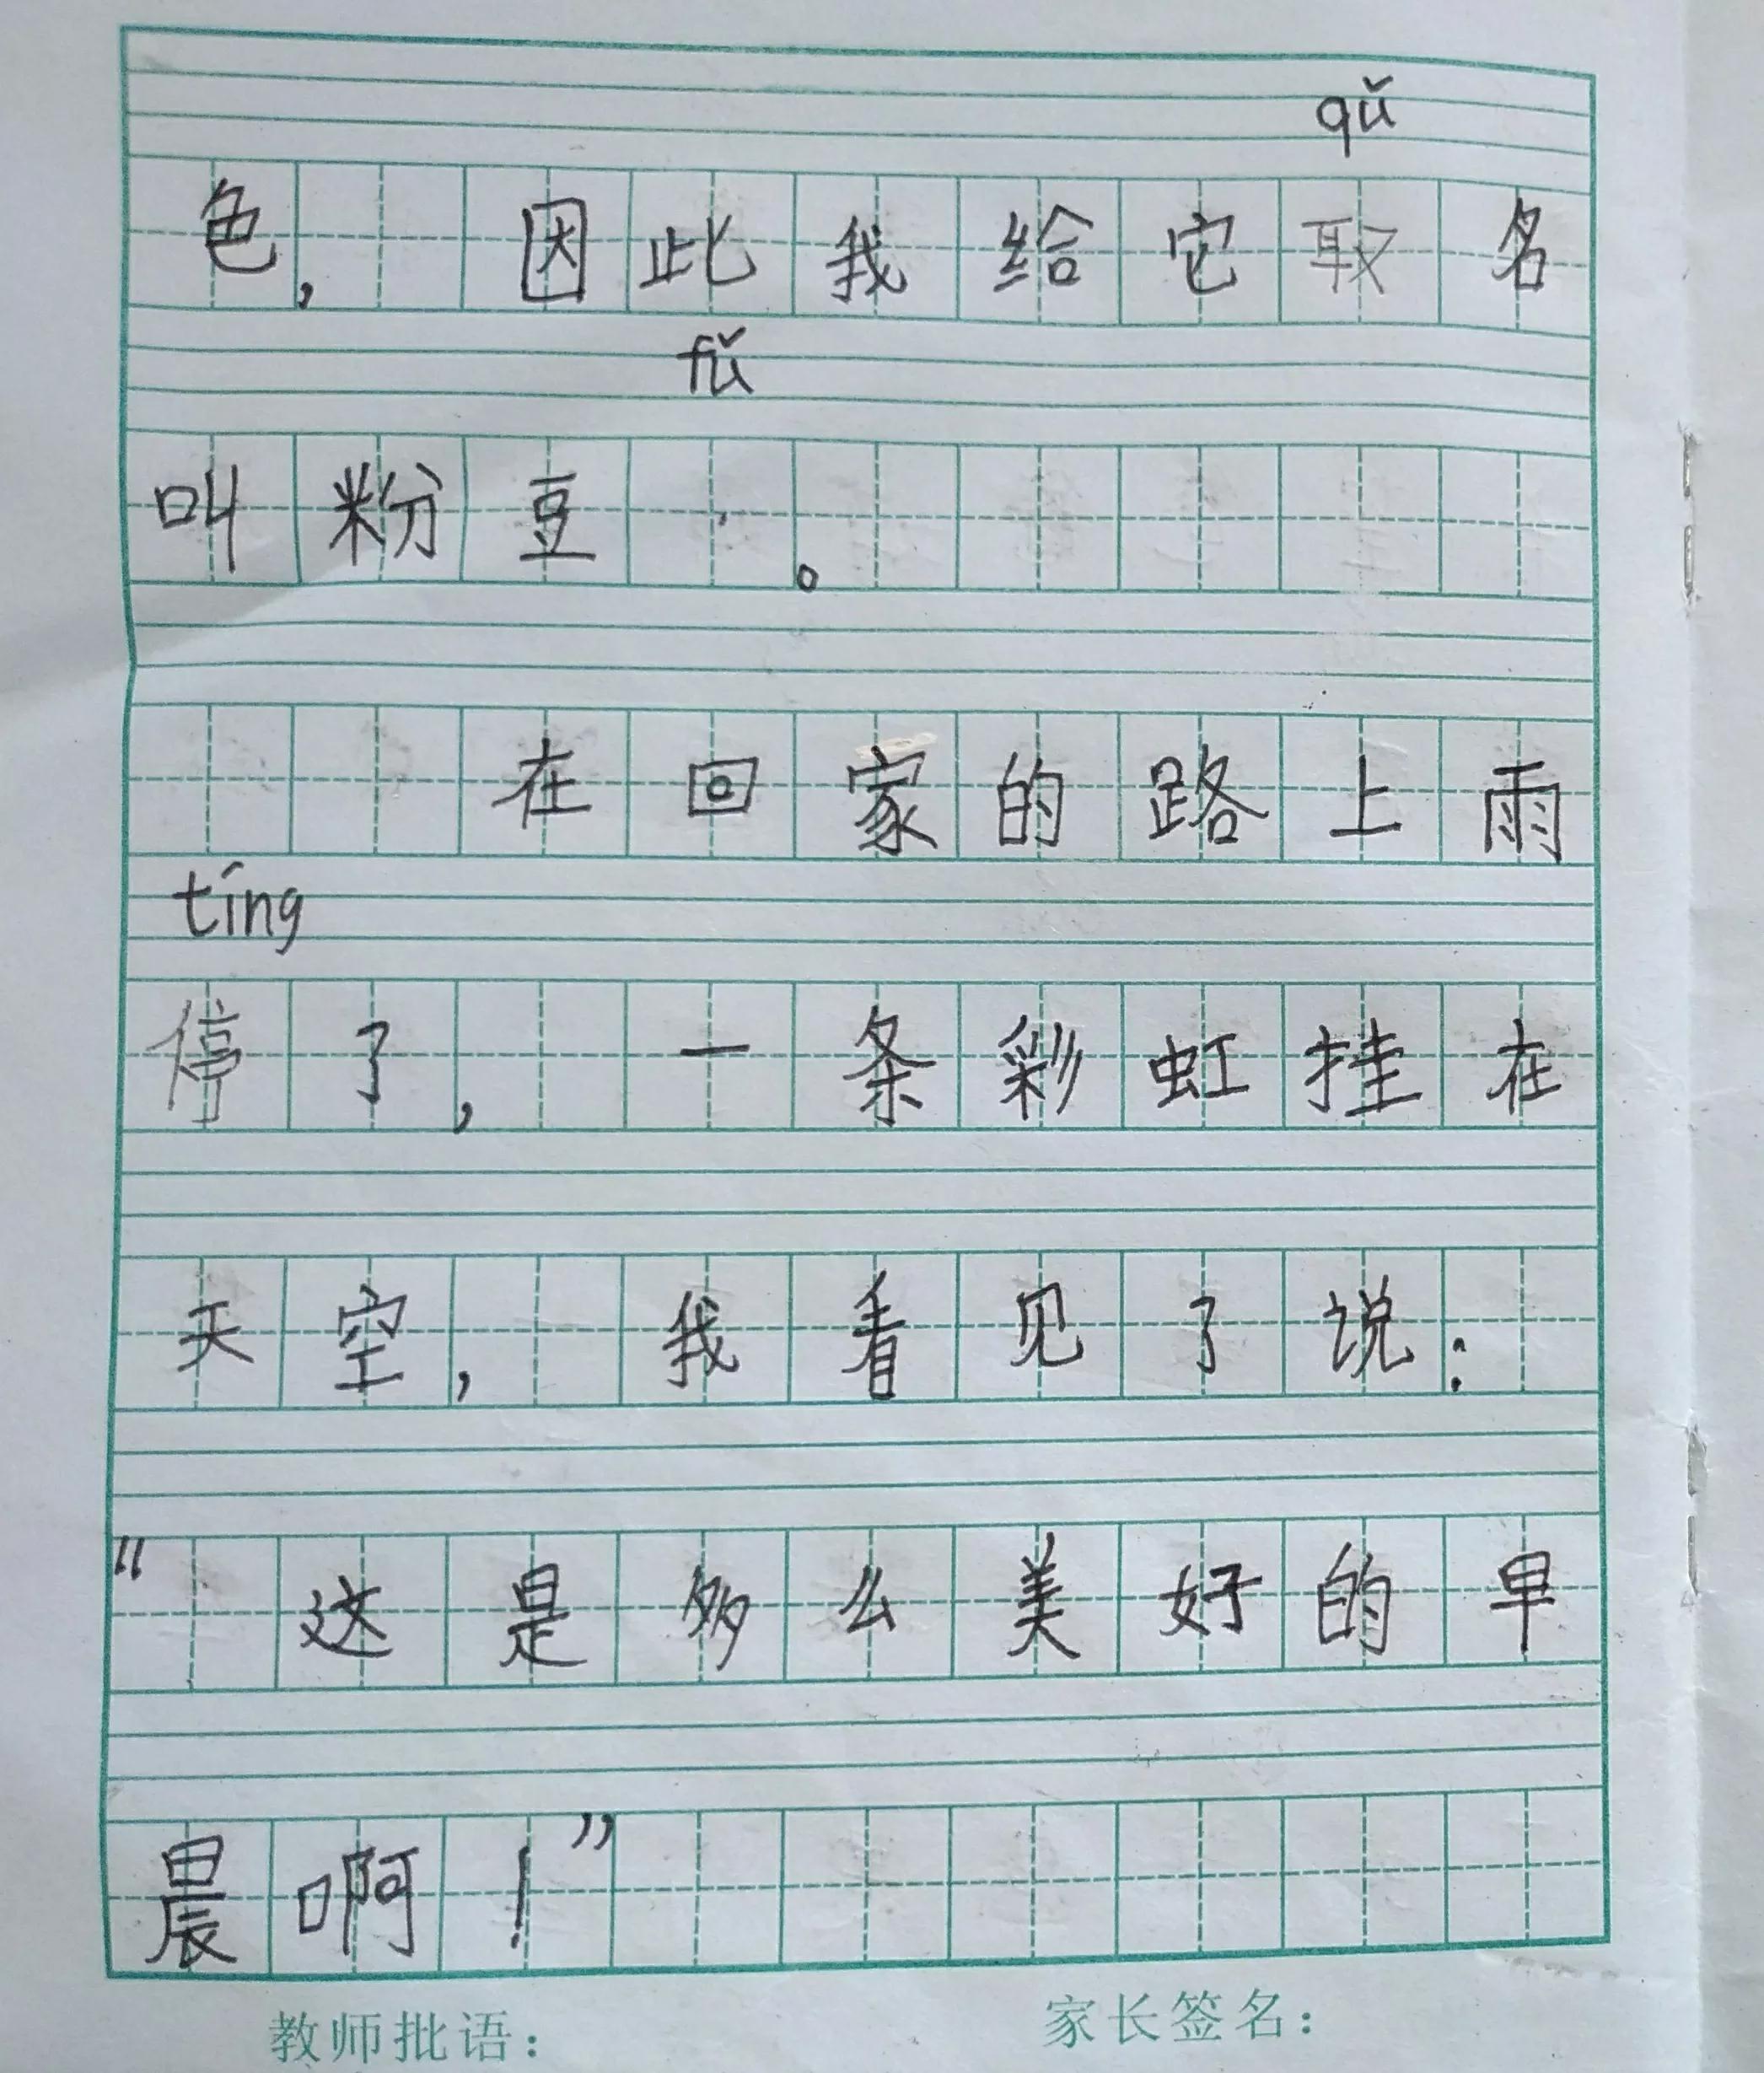 qǔ
色，因此我给它取名
fǔ
叫粉豆。
在回家的路上雨
tíng
停了，一条彩虹挂在
天空，我看见了说：
“这是多么美好的早
晨啊！”
教师批语：
家长签名：